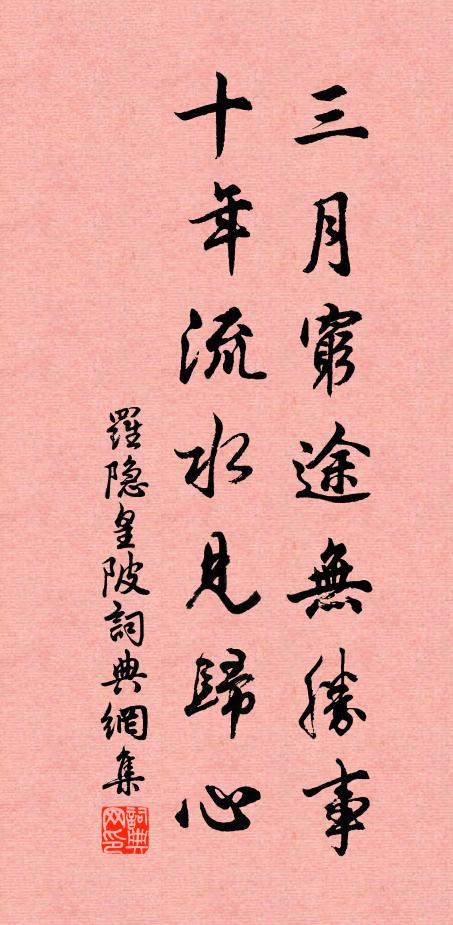 三月窮途無勝事
十年流水見歸心
羅隐皇陂詞典網集
詞典网印